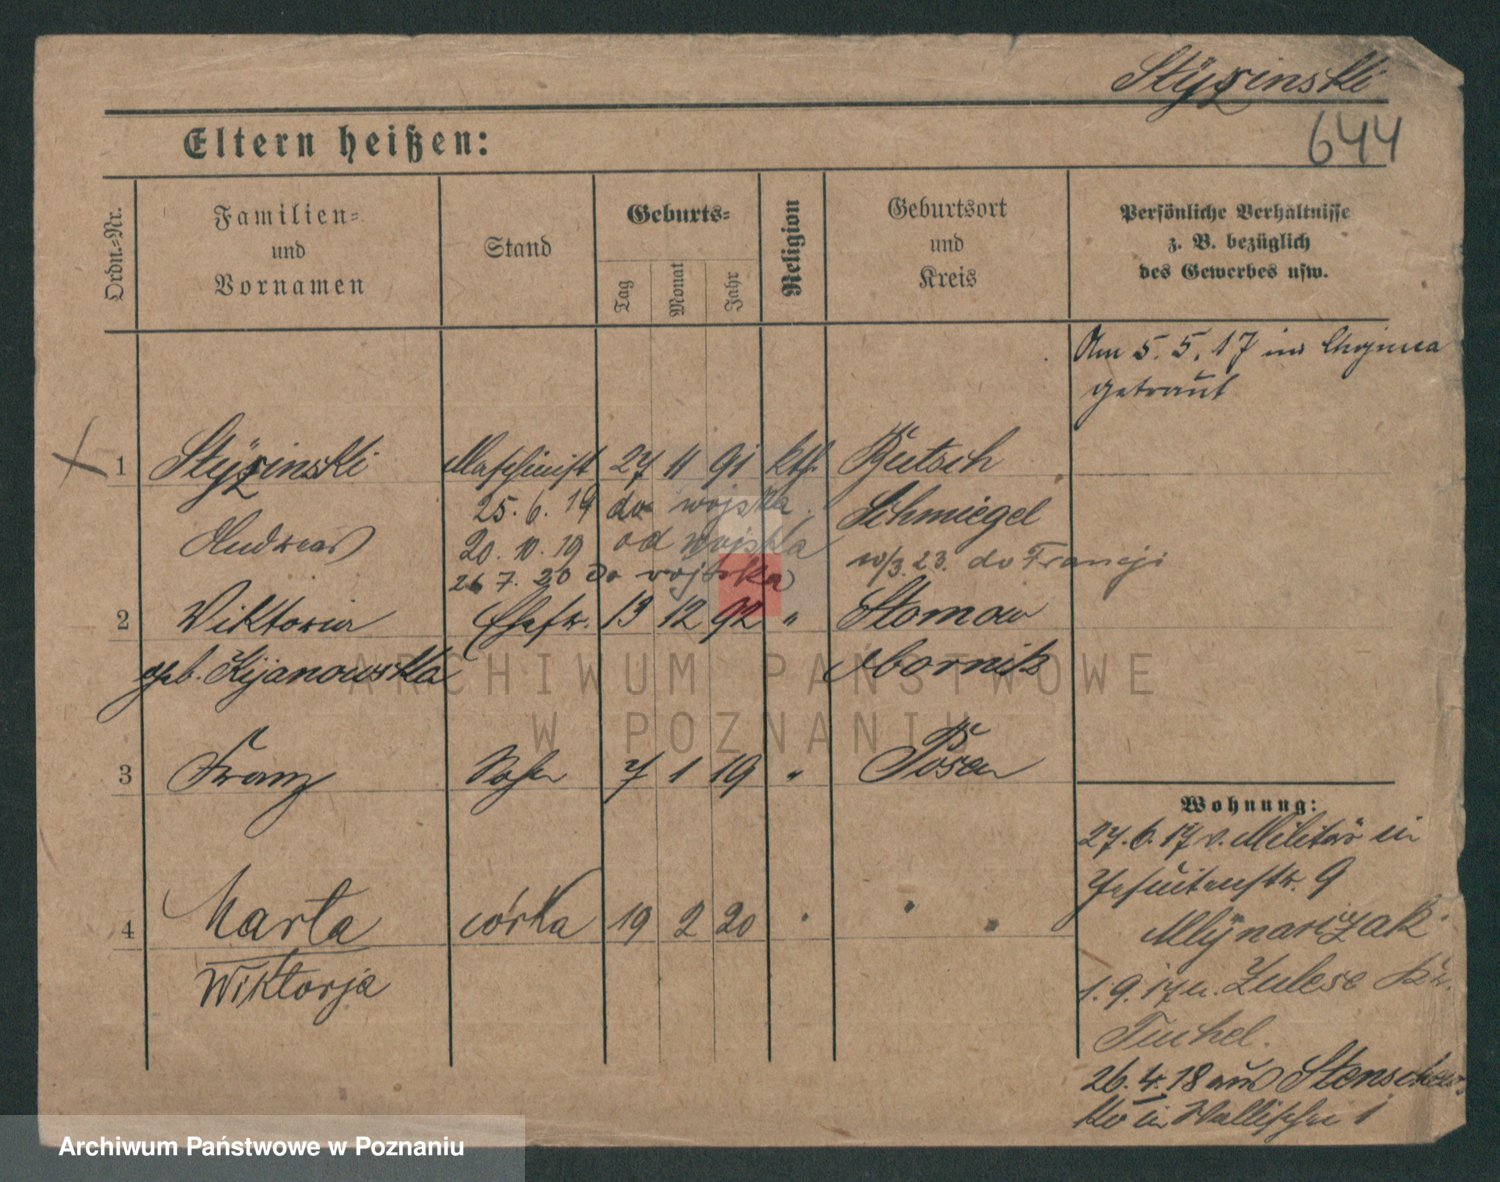 Styzinski
644
Eltern heißen:
Ordn.-Nr.
Familien-
und
Vornamen
Stand
Geburts-
Tag
Monat
Jahr
Religion
Geburtsort
und
Kreis
Persönliche Verhältnisse
z. B. bezüglich
des Gewerbes usw.
Am 5. 5. 17 in Chojnica
getraut
1 Styzinski Maschinist 27 11 91 kth. Bütsch
25. 6. 19 do wojska Schmiegel
Andreas 20. 10. 19 od wojska
26 7. 20 do wojska 23. do Francji
2 Viktoria Ehefr. 13 12 92 " Slomow
geb. Kijanowska Obornik
3 Franz Sohn 7 1 19 " Posen
Wohnung:
27. 6. 17 v. Militär in
Jesuitenstr. 9
4 Marta córka 19 2 20
Mlynarizak
Wiktorja
1. 9. 17 n. Kr.
Tuchel.
26. 4. 18 aus Stensche
ko in Wallischei 1
ARCHIWUM PAŃSTWOWE
W POZNANIU
Archiwum Państwowe w Poznaniu